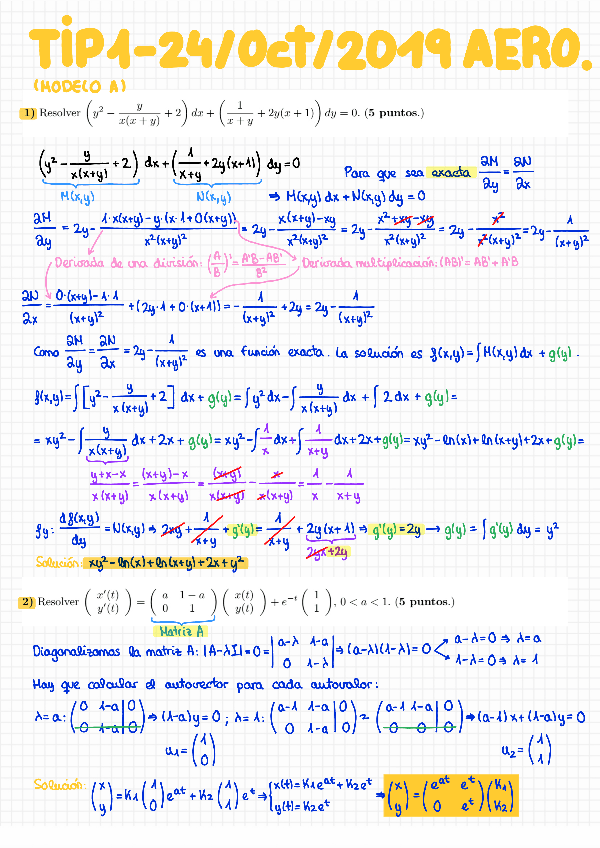 TIP1-24/Oct/2019 AERO.
(MODELO A)
1) Resolver (y² − y/(x(x + y)) + 2) dx + (1/(x + y) + 2y(x + 1)) dy = 0. (5 puntos.)
(y² − y/(x(x+y)) + 2) dx + (1/(x+y) + 2y(x+1)) dy = 0 Para que sea exacta ∂M/∂y = ∂N/∂x
M(x,y) N(x,y) ⇒ M(x,y) dx + N(x,y) dy = 0
∂M/∂y = 2y − (1·x(x+y) − y·(x·1+0(x+y)))/(x²(x+y)²) = 2y − (x(x+y) − xy)/(x²(x+y)²) = 2y − (x² + xy − xy)/(x²(x+y)²) = 2y − x²/(x²(x+y)²) = 2y − 1/(x+y)²
Derivada de una división: (A/B)' = (A'B − AB')/B² Derivada multiplicación: (AB)' = AB' + A'B
∂N/∂x = (0·(x+y) − 1·1)/(x+y)² + (2y·1 + 0·(x+1)) = − 1/(x+y)² + 2y = 2y − 1/(x+y)²
Como ∂M/∂y = ∂N/∂x = 2y − 1/(x+y)² es una función exacta. La solución es f(x,y) = ∫M(x,y) dx + g(y).
f(x,y) = ∫[y² − y/(x(x+y)) + 2] dx + g(y) = ∫y² dx − ∫ y/(x(x+y)) dx + ∫ 2 dx + g(y) =
= xy² − ∫ y/(x(x+y)) dx + 2x + g(y) = xy² − ∫ 1/x dx + ∫ 1/(x+y) dx + 2x + g(y) = xy² − ln(x) + ln(x+y) + 2x + g(y) =
(y+x−x)/(x(x+y)) = ((x+y)−x)/(x(x+y)) = (x+y)/(x(x+y)) − x/(x(x+y)) = 1/x − 1/(x+y)
fy: df(x,y)/dy = N(x,y) ⇒ 2xy + 1/(x+y) + g'(y) = 1/(x+y) + 2y(x+1) ⇒ g'(y) = 2y → g(y) = ∫ g'(y) dy = y²
2yx + 2y
Solución: xy² − ln(x) + ln(x+y) + 2x + y²
2) Resolver (x'(t) y'(t)) = (a 1 − a 0 1) (x(t) y(t)) + e^−t (1 1), 0 < a < 1. (5 puntos.)
Matriz A
Diagonalizamos la matriz A: |A−λI| = 0 = |a−λ 1−a 0 1−λ| ⇒ (a−λ)(1−λ) = 0 a−λ=0 ⇒ λ=a 1−λ=0 ⇒ λ=1
Hay que calcular el autovector para cada autovalor:
λ=a: (0 1−a | 0 0 1−a | 0) ⇒ (1−a)y = 0 ; λ=1: (a−1 1−a | 0 0 1−a | 0) = (a−1 1−a | 0 0 0 | 0) ⇒ (a−1)x + (1−a)y = 0
u₁ = (1 0) u₂ = (1 1)
Solución: (x y) = K₁ (1 0) e^at + K₂ (1 1) e^t ⇒ {x(t) = K₁e^at + K₂e^t y(t) = K₂e^t ⇒ (x y) = (e^at e^t 0 e^t) (K₁ K₂)